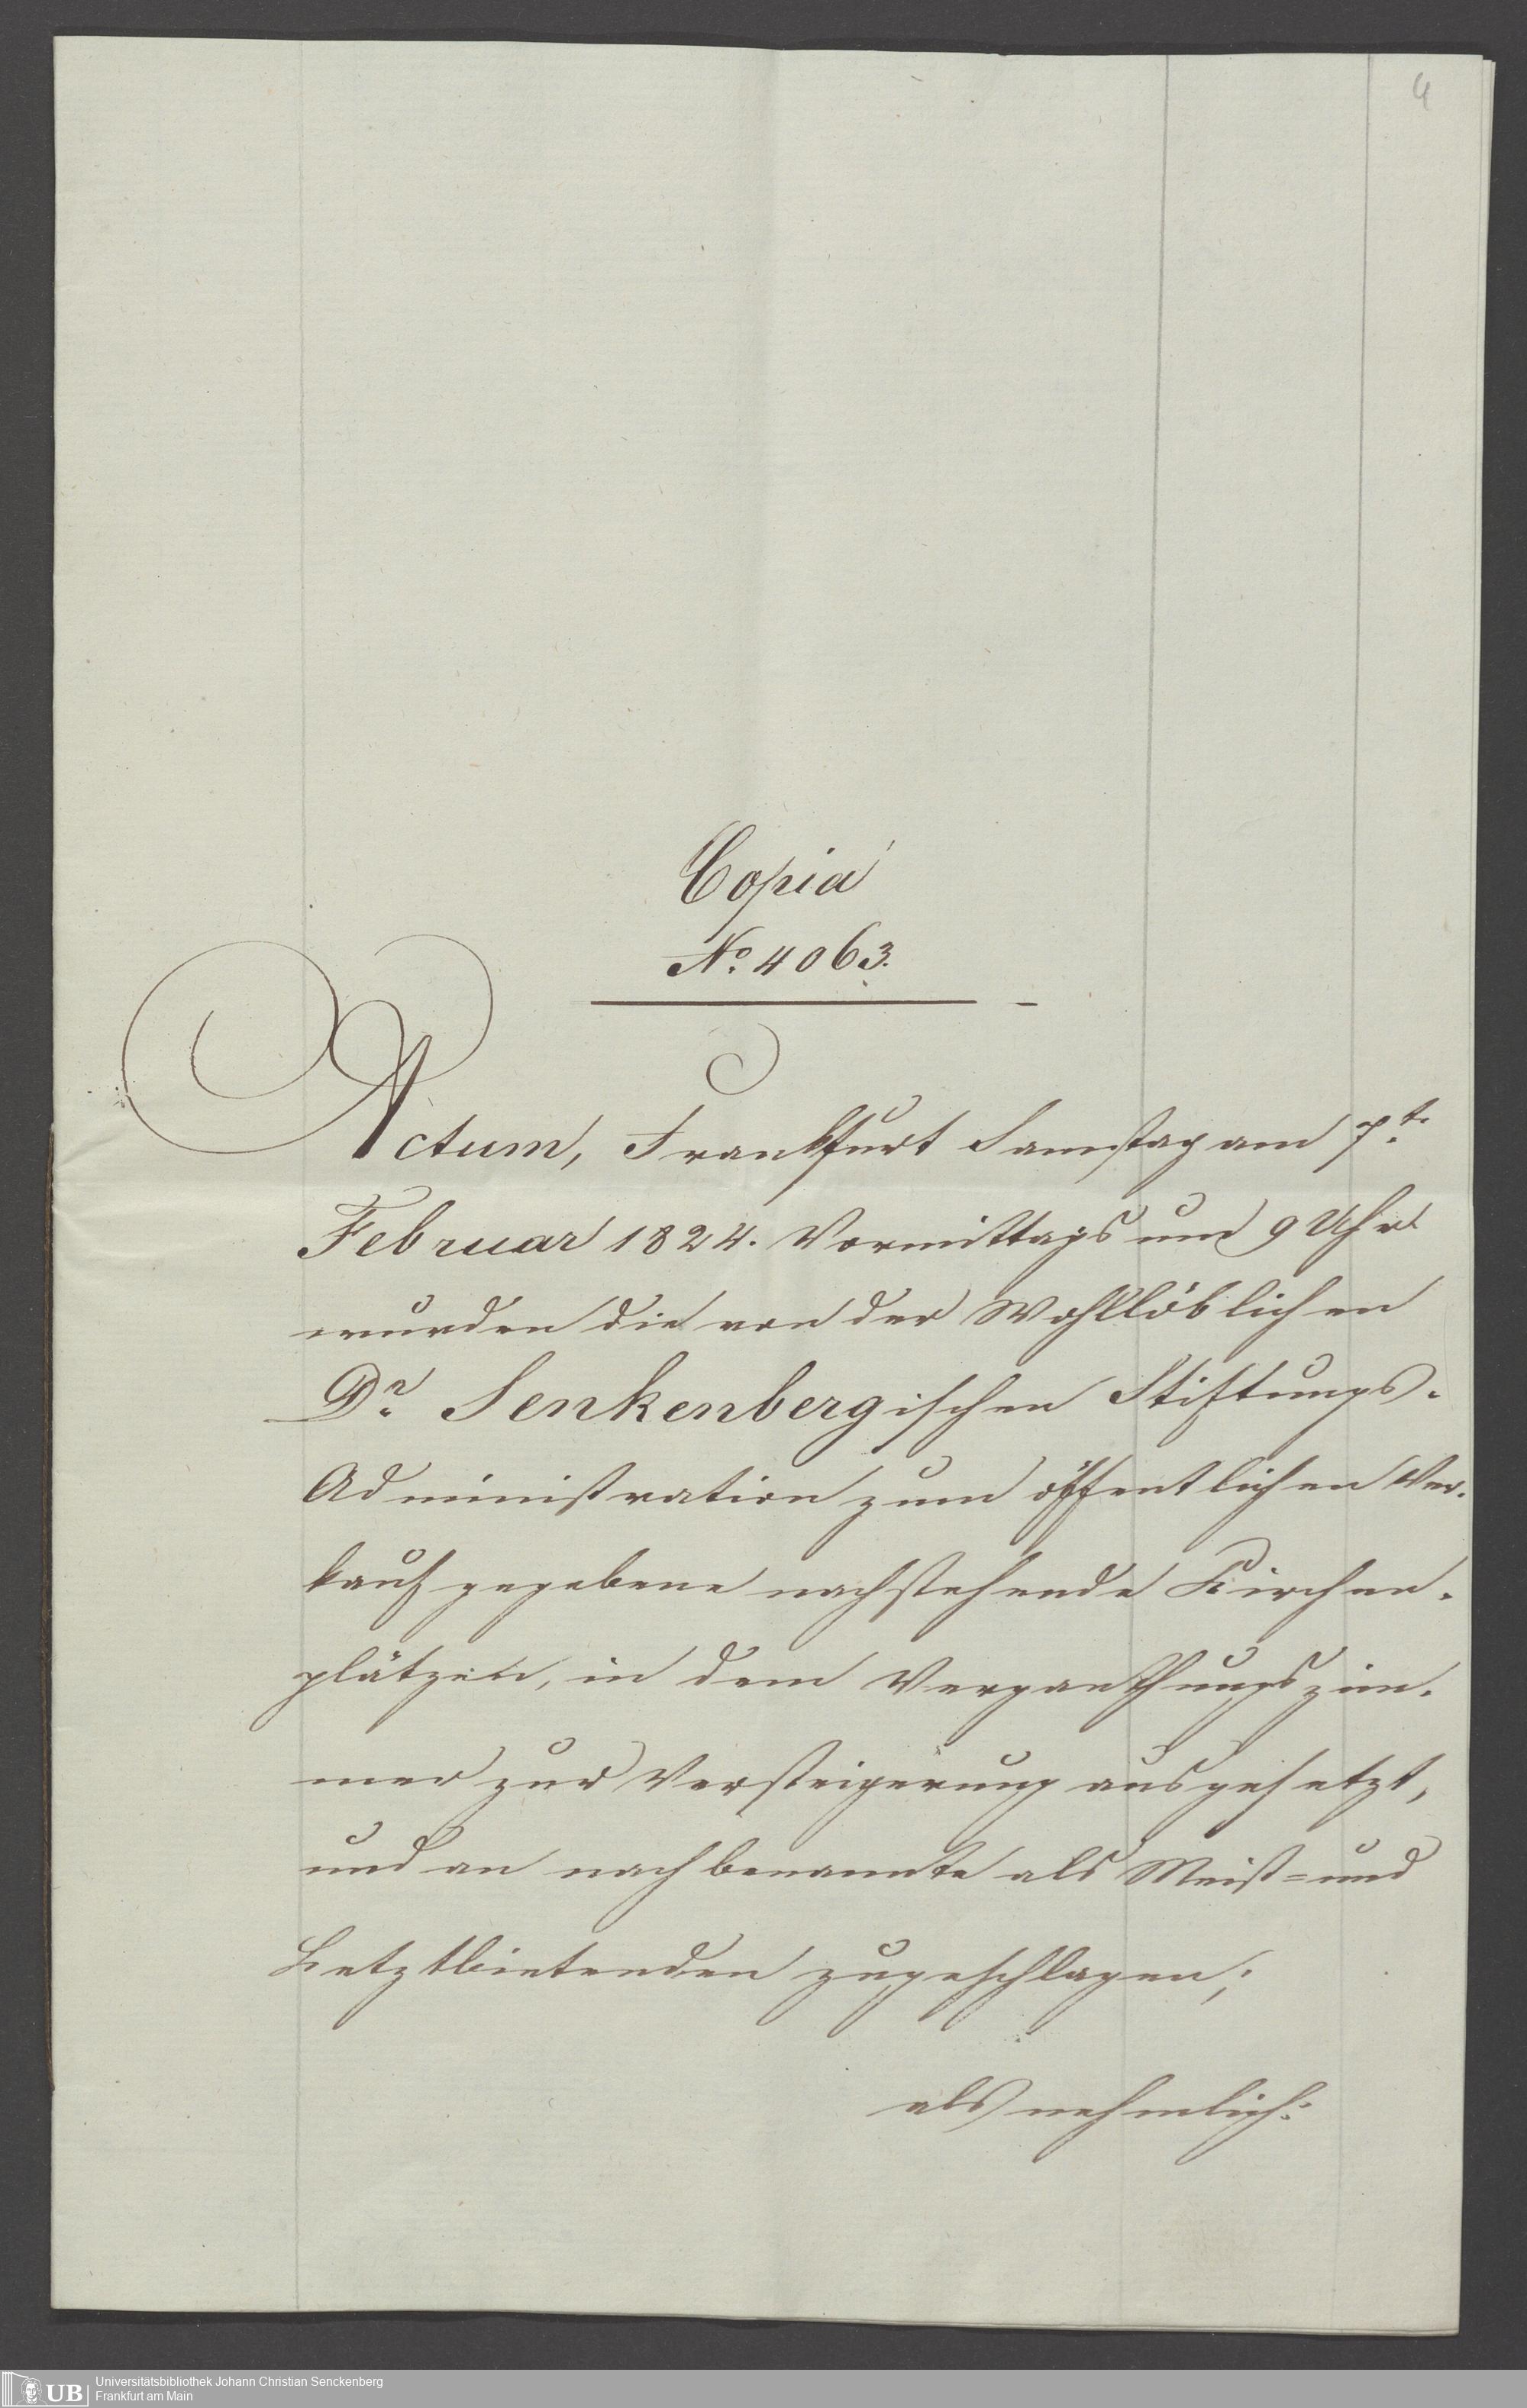 4
Copia
No. 4063.
Actum, Frankfurt Samstag am 7t.
Februar 1824. Vormittags um 9 Uhr
wurden die von der Wohllöblichen
Dr. Senkenbergischen Stiftungs-
Administration zum öffentlichen Ver-
kauf gegebene nachstehende Kirchen-
plätzen, in dem Verganthungszim-
mer zur Versteigerung ausgesetzt,
und an nachbenannte als Meist=und
Letztbietenden zugeschlagen;
als nehmlich:
UB
Universitätsbibliothek Johann Christian Senckenberg
Frankfurt am Main